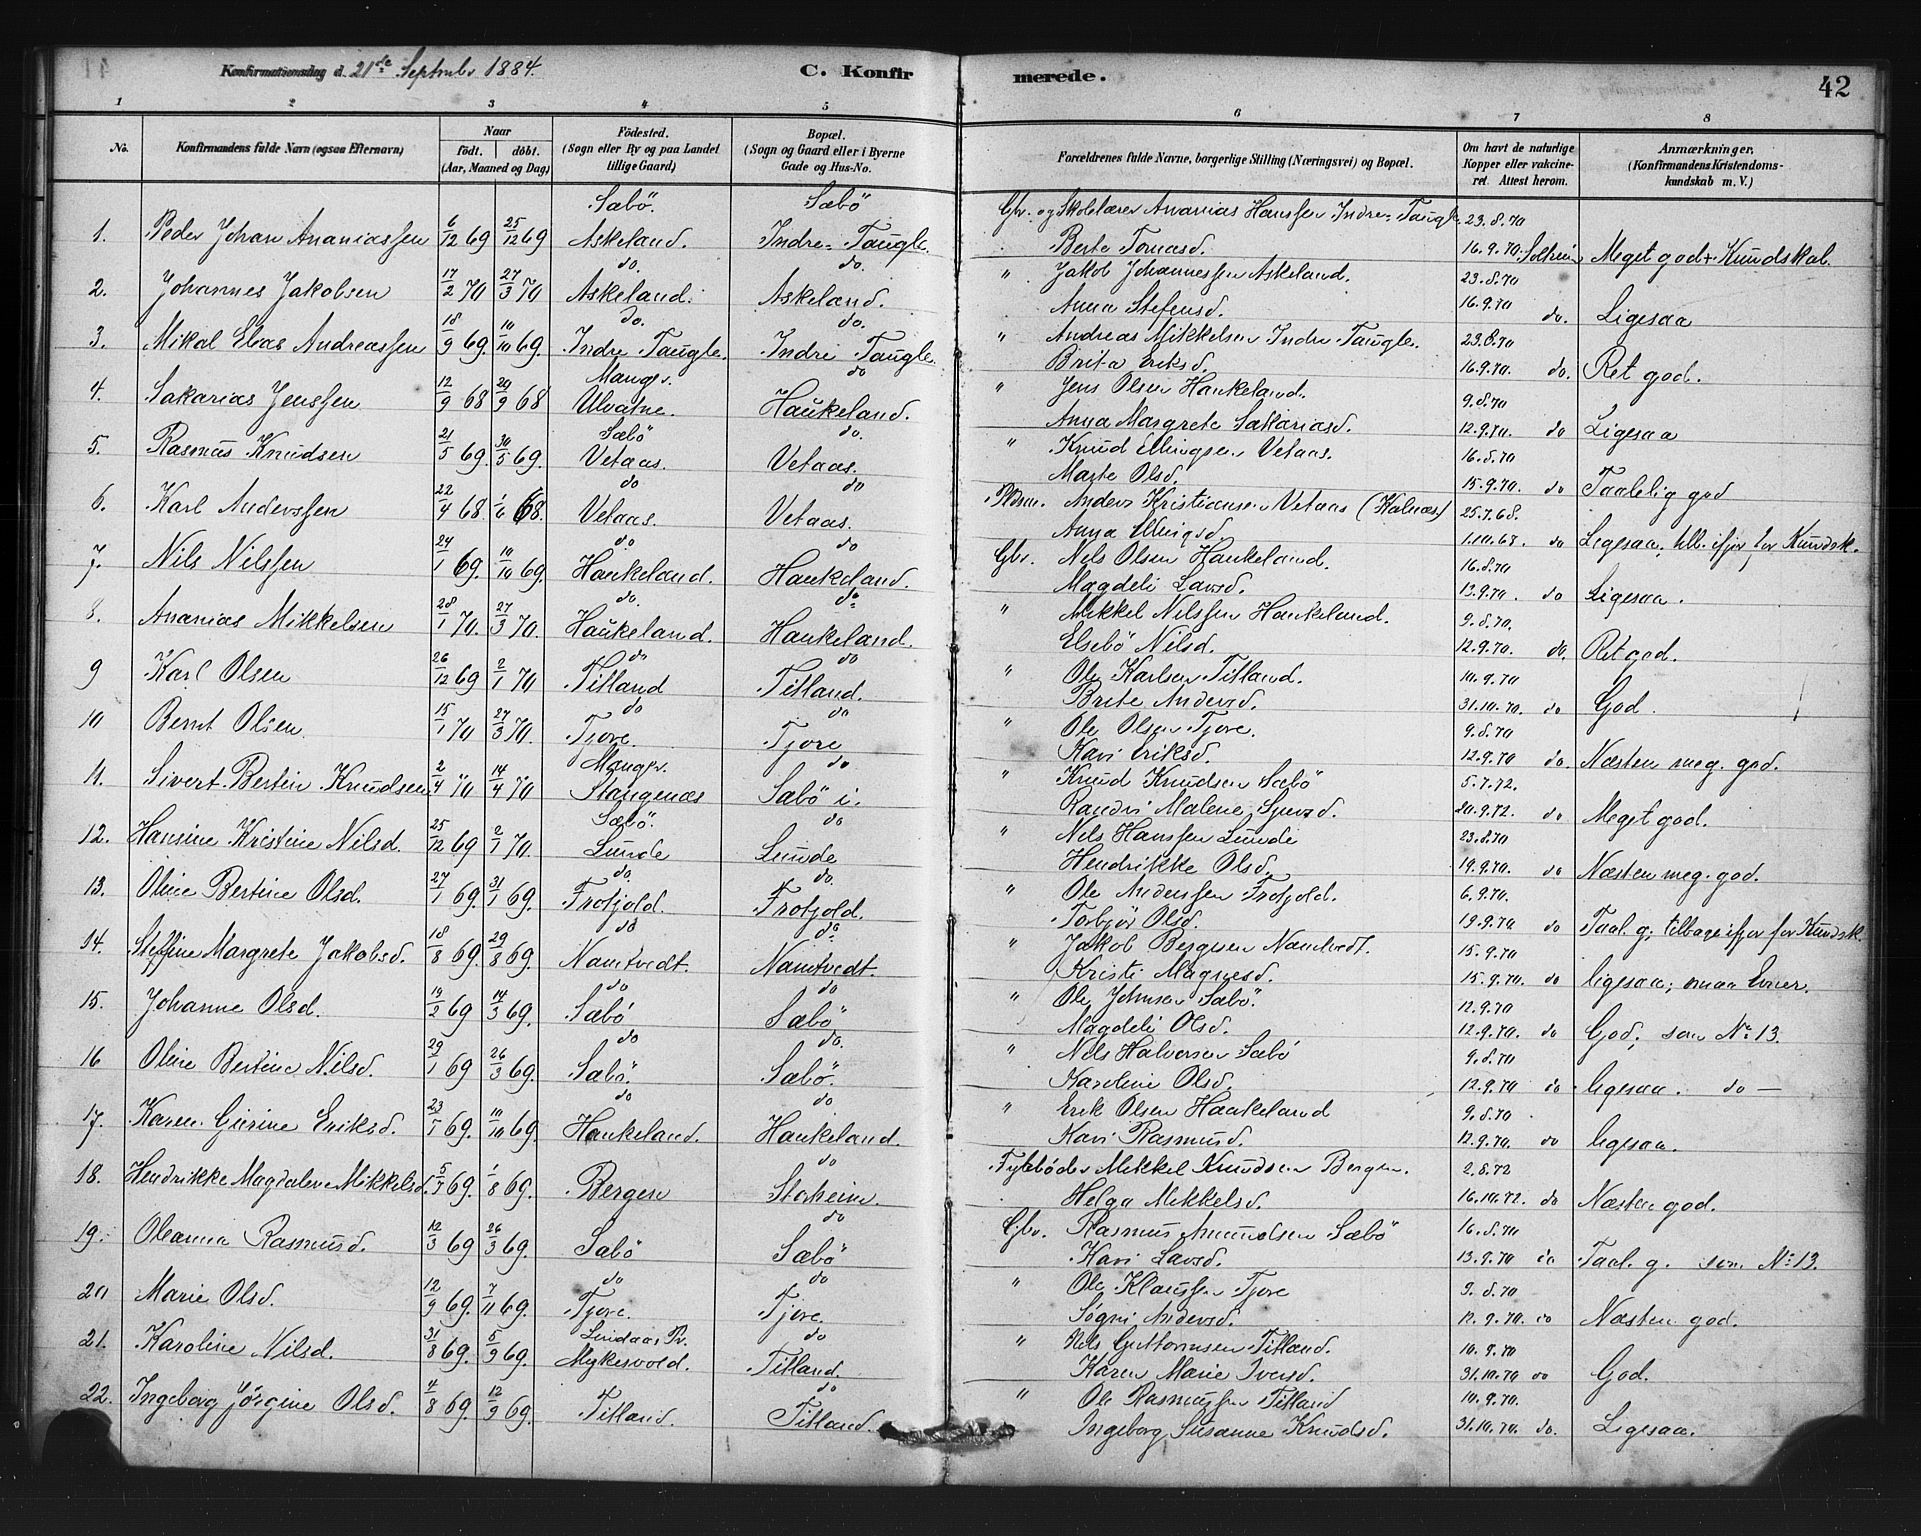 Konfirmationsdag d. 21de September 1884. C. Konfirmerede. 42
1 2 3 4 5 6 7 8
No. Konfirmandens fulde Navn (ogsaa Efternavn) Naar födt. döbt. (Aar, Maaned og Dag) Födested. (Sogn eller By og paa Landet tillige Gaard) Bopæl. (Sogn og Gaard eller i Byerne Gade og Hus-No. Forældrenes fulde Navne, borgerlige Stilling (Næringsvei) og Bopæl. Om havt de naturlige Kopper eller vakcineret. Attest herom. Anmærkninger. (Konfirmandens Kristendomskundskab m. V.)
Sæbö. Sæbö Gbr. og Skolelærer Ananias Hanssen Indre-Taugle 23.8.70
1. Peder Johan Ananiassen 6/12 69 25/12 69 Askeland. Indre-Taugle. Berte Tomasd. 16.9.70. Meget god Kundskab.
do. do. " Jakob Johannessen Askeland. 23.8.70
2. Johannes Jakobsen 17/2 70 27/3 70 Askeland. Askeland. Anna Stefensd. 16.9.70 do. Ligesaa
do. do. " Andreas Mikkelsen Indre Taugle. 23.8.70
3. Mikal Elias Andreassen 18/9 69. 10/10 69. Indre Taugle. Indre Taugle. Brita Eriksd. 16.9.70. do. Ret god.
Manger. do " Jens Olsen Haukeland. 9.8.70
4. Sakarias Jenssen 12/9 68 29/9 68 Ulvatne. Haukeland. Anna Margrete Sakariasd. 12.9.70. do Ligesaa
Sæbö do. " Knud Ellingsen Vetaas. 16.8.70
5. Rasmus Knudsen 21/5 69. 30/5 69. Vetaas. Vetaas. Marte Olsd. 15.9.70. do Taalelig god
do do Pldsm. Anders Kristiansen Vetaas (Kalnæs) 25.7.68.
6. Karl Anderssen 22/4 68. 1/6 68. Vetaas. Vetaas. Anna Ellingsd. 1.10.68. do Ligesaa; tilb. ifjor for Kundsk.
do do Gbr. Nels Olsen Haukeland. 16.8.70
7. Nils Nilssen 24/1 69. 10/10 69. Haukeland. Haukeland. Magdeli Larsd. 13.9.70. do Ligesaa.
do. do " Mikkel Nilssen Haukeland. 9.8.70.
8. Ananias Mikkelsen 28/1 70. 27/3 70. Haukeland. Haukeland. Elsebö Nilsd. 12.9.70. do. Ret god.
do do " Ole Karlsen Titland. 10.9.70
9 Karl Olsen 26/12 69 2/1 70 Titland Titland. Brite Andersd. 31.10.70. do God.
do do " Ole Olsen Tjore. 9.8.70
10 Bernt Olsen. 15/1 70 27/3 70. Tjore. Tjore Kari Eriksd. 12.9.70 do. Næsten meg. god.
Manger. do. " Knud Knudsen Sæbö 5.7.72.
11. Sivert Bertin Knudsen 2/4 70 14/4 70 Stangenæs Sæbö i. Randi Malene Sjursd. 20.9.72. do Meget god.
Sæbö. do " Nels Hanssen Lunde 23.8.70
12. Hansine Kristine Nilsd. 25/12 69 2/1 70. Lunde Lunde Hendrikke Olsd. 19.9.70. do Næsten meg. god.
do. do. " Ole Anderssen Frotjold. 6.9.70.
13. Oline Bertine Olsd. 27/1 69. 31/1 69. Frotjold. Frotjold. Torbjör Olsd. 19.9.70 do Taal. g; tilbage ifjor for Kundsk.
do do " Jakob Bergesen Namtvedt. 15.9.70
14. Steffine Margrete Jakobsd. 18/8 69. 29/8 69. Namtvedt. Namtvedt. Kristi Magnesd. 15.9.70 do ligesaa; smaa Evner.
do do " Ole Johnsen Sæbö. 12.9.70
15. Johanne Olsd. 19/2 69 14/3 69. Sæbö Sæbö Magdeli Olsd. 12.9.70. do God; som No 13.
do do. " Nels Halvorsen Sæbö 9.8.70
16 Oline Bertine Nilsd. 29/1 69 26/3 69. Sæbö. Sæbö. Karoline Olsd. 12.9.70 do ligesaa. do —
do do " Erik Olsen Haukeland 9.8.70.
17. Karen Gurine Eriksd. 23/1 69. 10/10 69. Haukeland. Haukeland. Kari Rasmusd. 12.9.70. do ligesaa.
do Mikkel Knudsen Bergen. 2.8.72
18. Hendrikke Magdalene Mikkelsd. 5/7 69. 1/8 69. Bergen Storheim. Helga Mikkelsd. 16.10.72. do Næsten god.
do Gbr. Rasmus Amundsen Sæbö 16.8.70
19. Oleanna Rasmusd. 12/3 69 26/3 69. Sæbö Sæbö Kari Larsd. 13.9.70 do Taal. g. som No 13.
do do " Ole Klaussen Tjore 9.8.70
20 Marie Olsd. 12/9 69. 7/11 69. Tjore. Tjore. Sögni Andersd. 12.9.70. do Næsten god.
Lindaas Pr. do " Nils Guttormsen Titland. 10.9.70
21. Karoline Nilsd. 31/8 69. 5/9 69. Mykesvold. Titland. Karen Marie Iversd. 31.10.70 do God.
do " Ole Rasmussen Titland 10.9.70.
22. Ingeborg Jörgine Olsd. 4/8 69. 12/9 69. Titland. Titland. Ingeborg Susanne Knudsd. 31.10.70. do. Ligesaa.